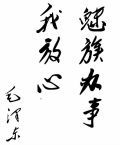 魅族办事
我放心
毛泽东